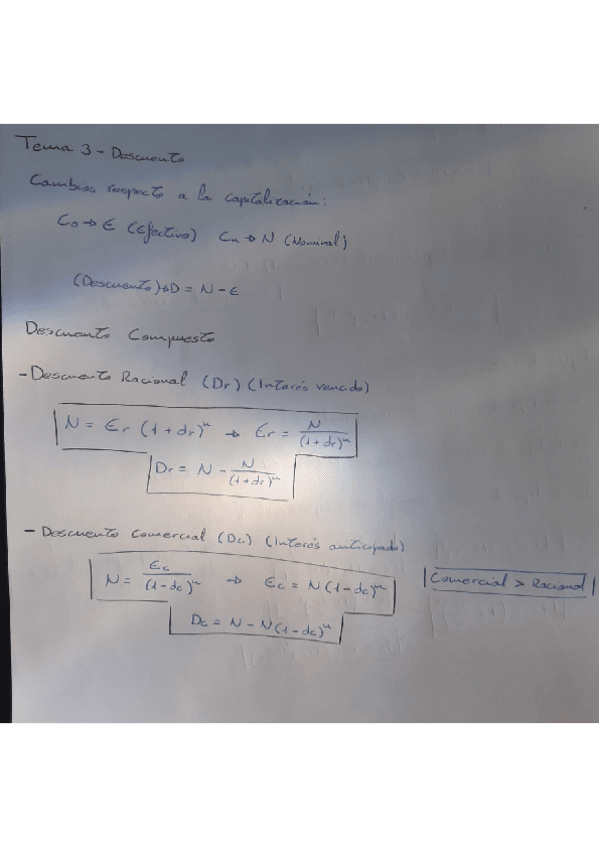 Tema 3 - Descuento
Cambios respecto a la capitalización:
C₀ → E (Efectivo) Cₙ → N (Nominal)
(Descuento) → D = N - E
Descuento Compuesto
- Descuento Racional (Dr) (Interés vencido)
N = Er (1 + dr)ⁿ → Er = N / (1 + dr)ⁿ
Dr = N - N / (1 + dr)ⁿ
- Descuento Comercial (Dc) (Interés anticipado)
N = Ec / (1 - dc)ⁿ → Ec = N (1 - dc)ⁿ
Comercial > Racional
Dc = N - N (1 - dc)ⁿ